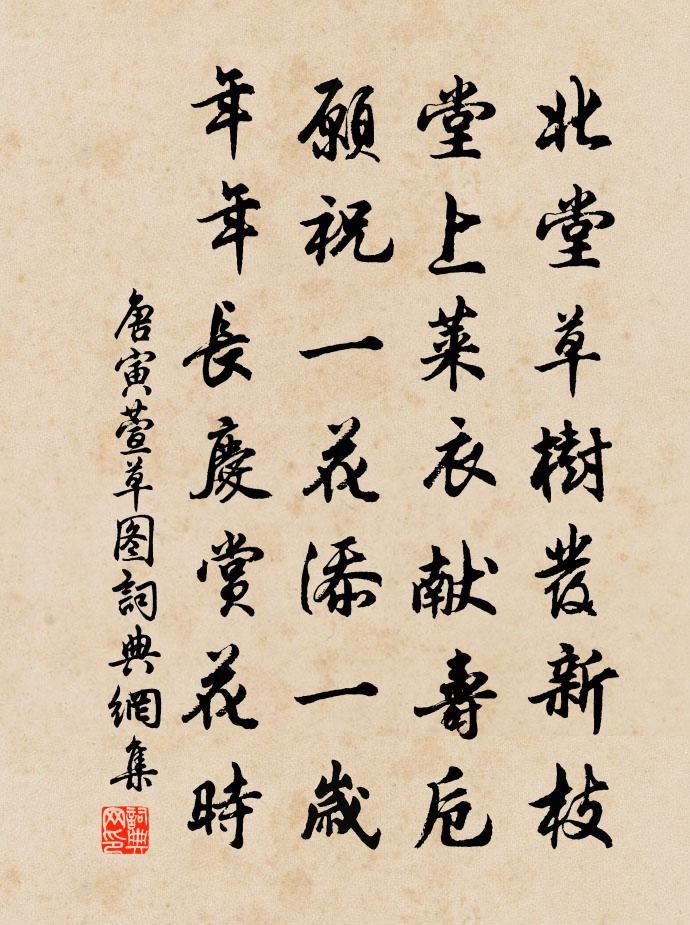 北堂草樹發新枝
堂上萊衣献壽卮
願祝一花添一歲
年年長慶賞花時
唐寅萱草图詞典網集
詞典网印